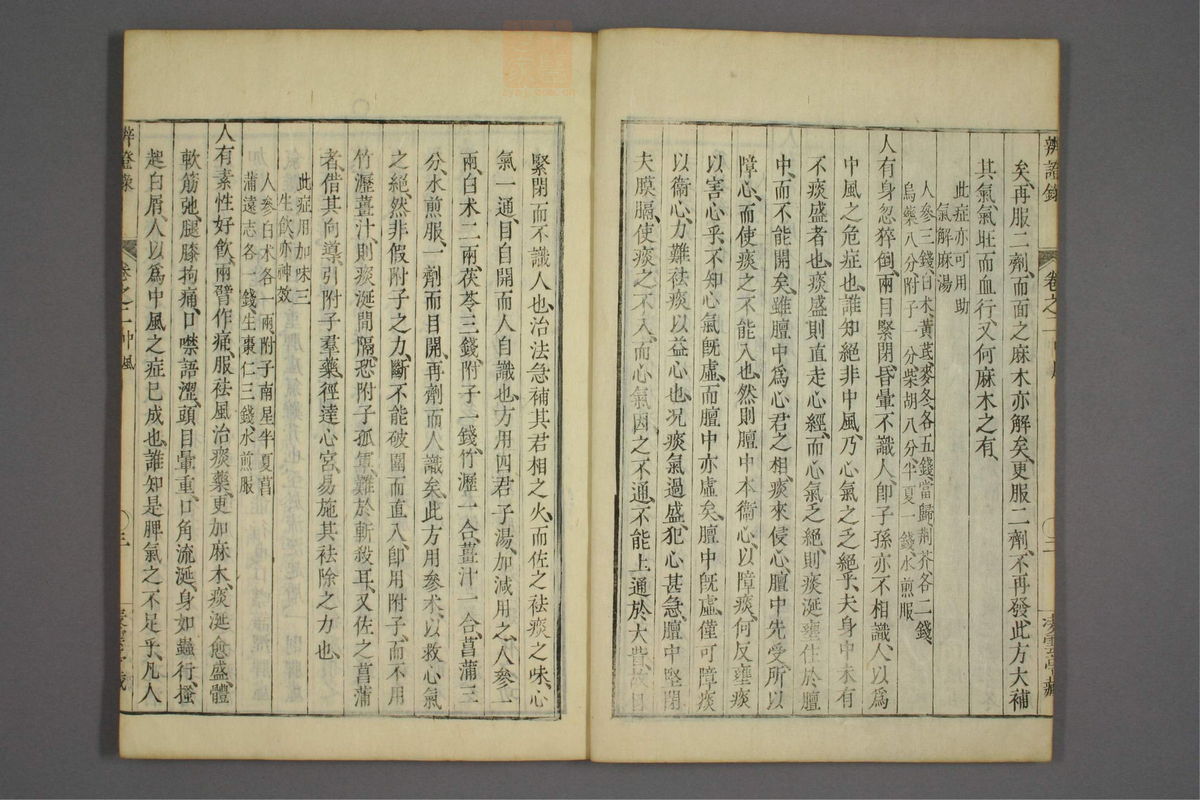 矣、再服二劑、而面之麻木亦解矣、更服二劑、不再發、此方大補
其氣、氣旺而血行、又何麻木之有、
此症亦可用助
氣解麻湯
人參三錢、白朮、黃芪、麥冬各五錢、當歸、荊芥各二錢、
烏藥八分、附子一分、柴胡八分、半夏一錢、水煎服、
人有身忽猝倒、兩目緊閉、昏暈不識人、即子孫亦不相識、人以爲
中風之危症也、誰知絕非中風、乃心氣之乏絕乎、夫身中未有
不痰盛者也、痰盛則直走心經、而心氣乏絕、則痰涎壅住於膻
中、而不能開矣、雖膻中爲心君之相、痰來侵心、膻中先受、所以
障心、而使痰之不能入也、然則膻中本衞心、以障痰、何反壅痰
以害心乎、不知心氣旣虛、而膻中亦虛矣、膻中旣虛、僅可障痰
以衞心、力難祛痰以益心也、况痰氣過盛、犯心甚急、膻中堅閉
夫膜膈、使痰之不入、而心氣因之不通、不能上通於大
緊閉而不識人也、治法急補其君相之火、而佐之祛痰之味、心
氣一通、目自開而人自識也、方用四君子湯、加減用之、人參一
兩、白朮二兩、茯苓三錢、附子一錢、竹瀝一合、薑汁一合、菖蒲三
分、水煎服、一劑而目開、再劑而人識矣、此方用參朮、以救心氣
之絕、然非假附子之力、斷不能破圍而直入、卽用附子、而不用
竹瀝薑汁、則痰涎間隔、恐附子孤軍、難於斬殺耳、又佐之菖蒲
者、借其向導、引附子羣藥、徑達心宮、易施其祛除之力也、
此症用加味三
生飲亦神效
人參、白朮各一兩、附子、南星、半夏、菖
蒲、遠志各一錢、生棗仁三錢、水煎服
人有素性好飲、兩臂作痛、服祛風治痰藥、更加麻木、痰涎愈盛、體
軟筋弛、腿膝拘痛、口噤語澀、頭目暈重、口角流涎、身如蟲行、搔
起白屑、人以爲中風之症已成也、誰知是脾氣之不足乎、凡人
辨證錄
卷之二中風